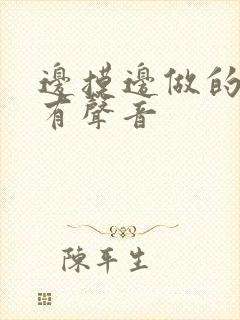 邊摸邊做的
有聲音
陳年生